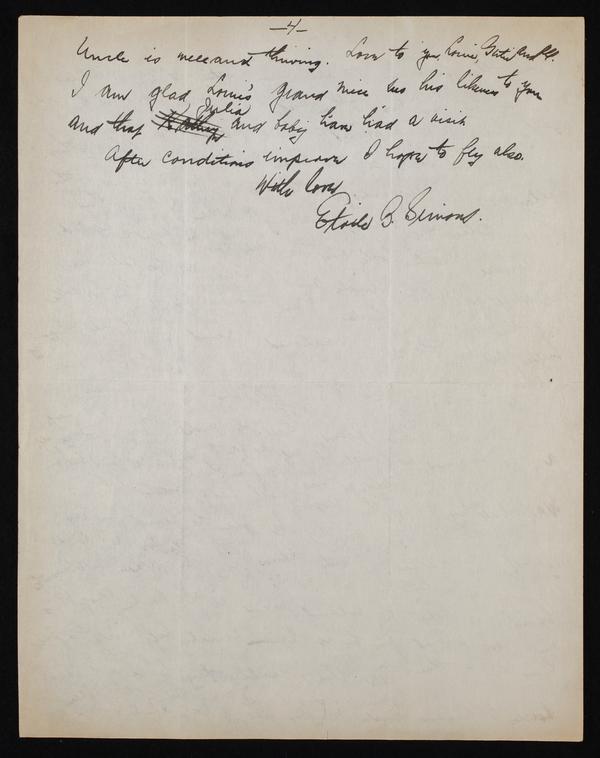 -4-
Uncle is well and thriving. Love to you, Louie, and
I am glad Louie's grand niece his likeness to you
and that Julia and baby have had a visit
After conditions improve I hope to fly also.
With love
B. Simons.